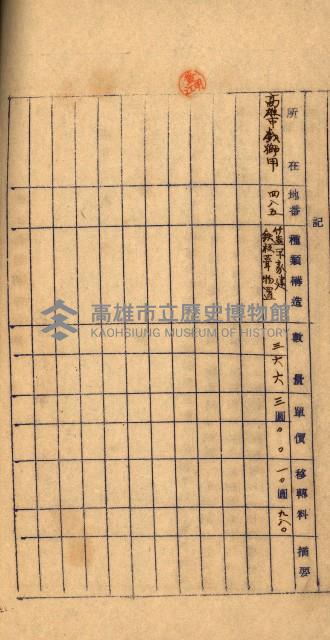 記
所在 地番 種類構造 數量 單價 移轉料 摘要
高雄市戲獅甲 四八五 三六六 三圓〇〇 一〇圓九八〇
鉄板葺物置
高雄市立歷史博物館
KAOHSIUNG MUSEUM OF HISTORY